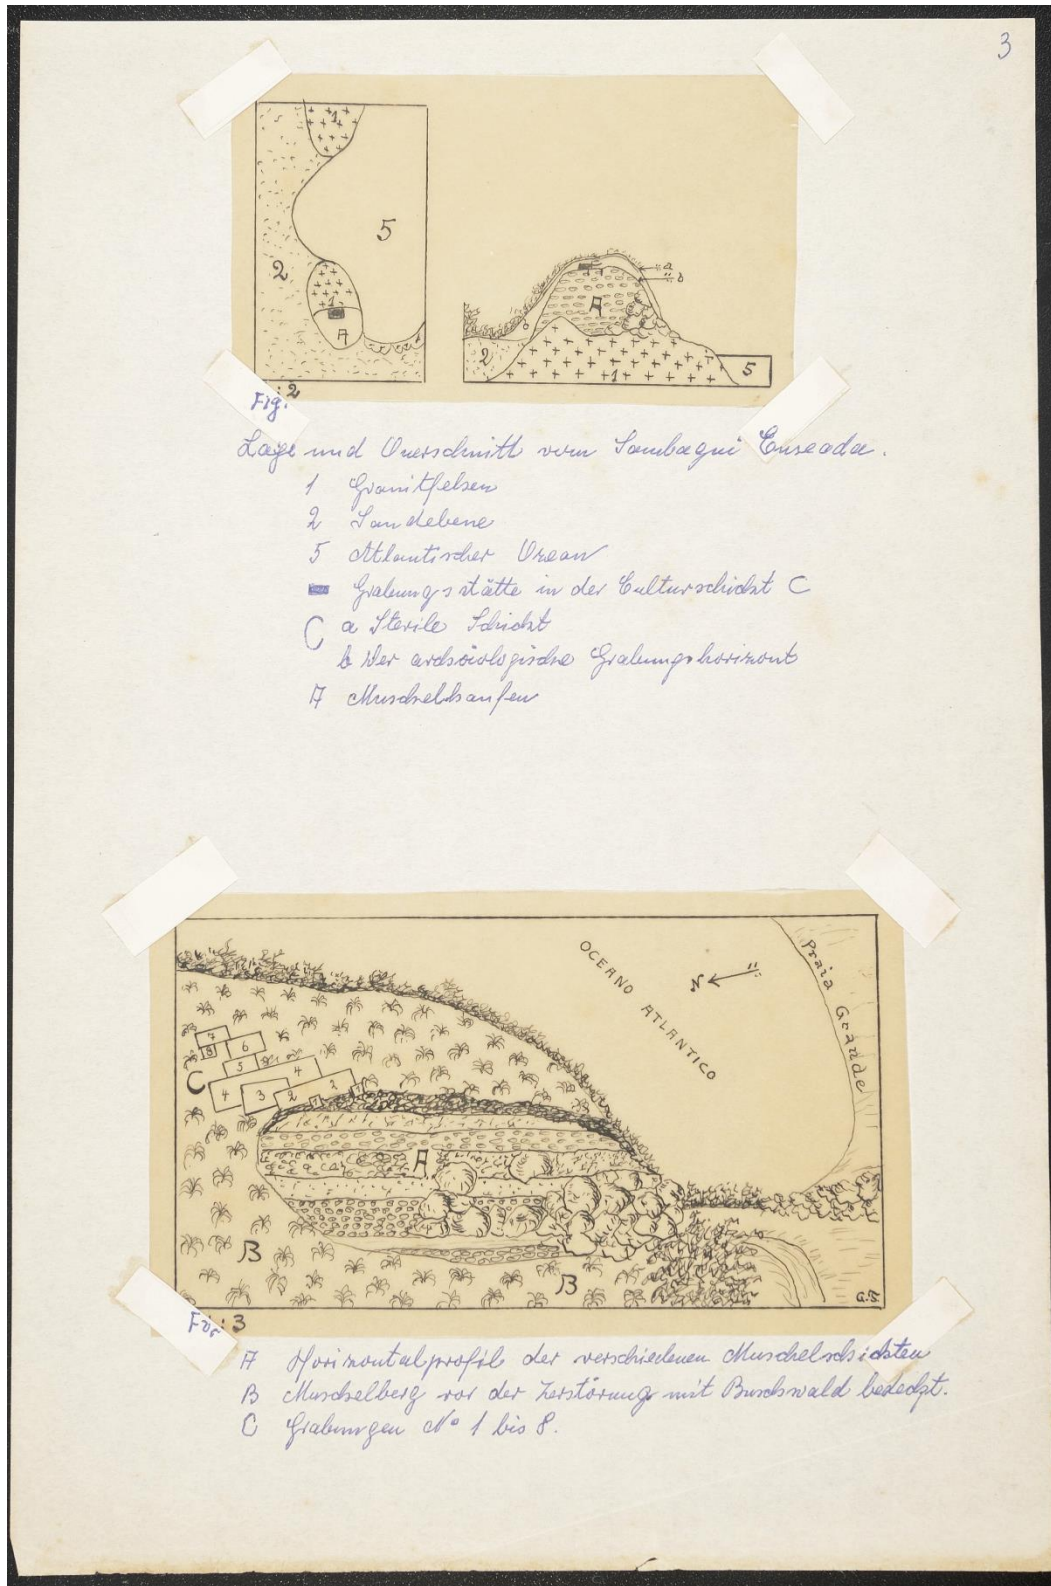 3
1
5
2
1
A
a
b
A
2
1
5
Fig. 2
Lage und Querschnitt vom Sambaqui Enseada.
1 Granitfelsen
2 Sandebene
5 Atlantischer Ozean
Grabungsstätte in der Culturschicht C
C a Sterile Schicht
b Der archäologische Grabungshorizont
A Muschelhaufen
OCEANO ATLANTICO
N
Praia Grande
7
8 6
5 4
C 4 3 2 1 2 1
A
B
B
G.T.
Fig. 3
A Horizontalprofil der verschiedenen Muschelschichten
B Muschelberg vor der Zerstörung mit Buschwald bedeckt.
C Grabungen No 1 bis 8.